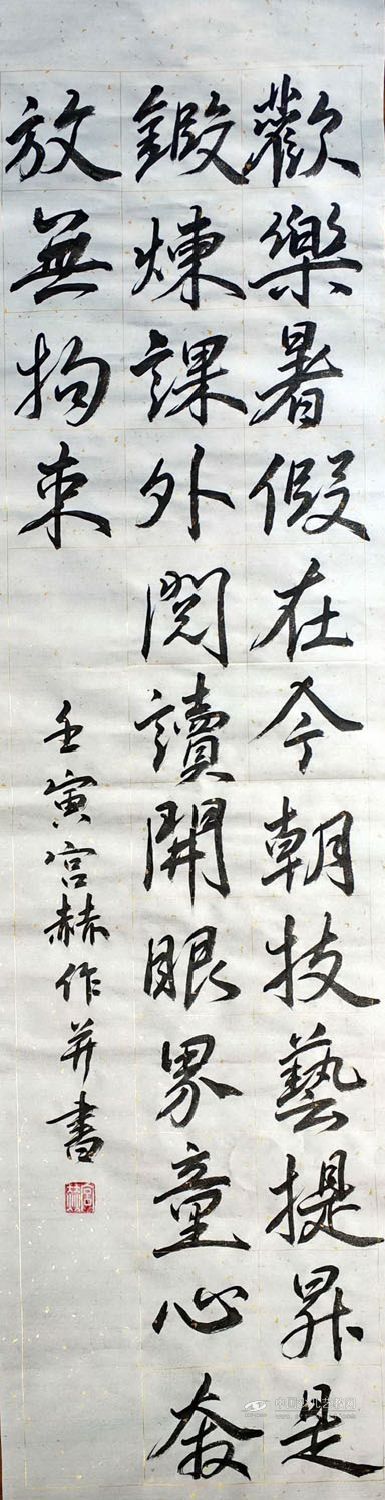 歡樂暑假在今朝技藝提昇是
鍛煉課外閱讀開眼界童心奔
放無拘束
壬寅宮赫作并書